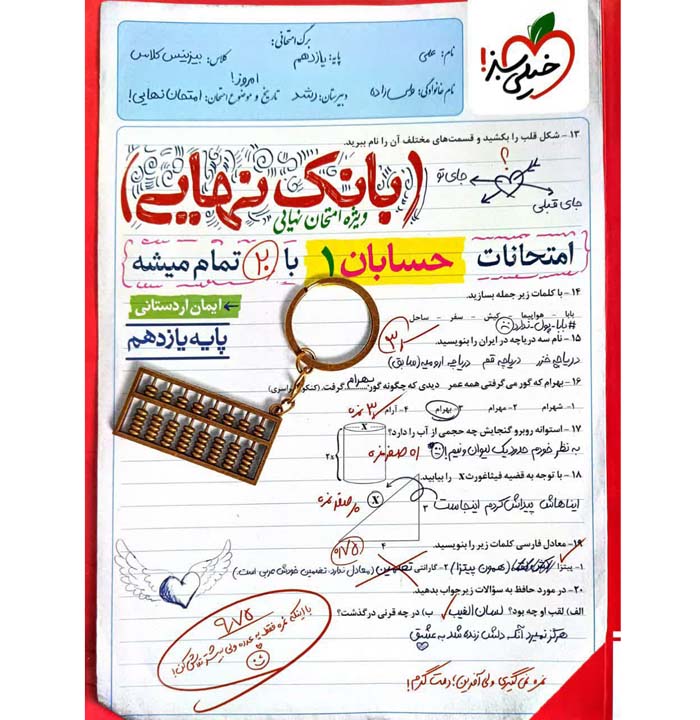 خیلی سبز!
برگ امتحانی:
نام: علی
پایه: یازدهم
کلاس: بیزینس کلاس
نام خانوادگی:
دبیرستان: رشد
تاریخ و موضوع امتحان: امروز! امتحان نهایی!
۱۳- شکل قلب را بکشید و قسمت‌های مختلف آن را نام ببرید.
؟
جای تو
جای قبلی
(بانک نهایی)
ویژه امتحان نهایی
امتحانات حسابان ۱ با ۲۰ تمام میشه
ایمان اردستانی
پایه یازدهم
۱۴- با کلمات زیر جمله بسازید.
بابا - هواپیما - کیش - سفر - ساحل
#بابا_پول_ندارد
۱۵- نام سه دریاچه در ایران را بنویسید.
دریاچه خزر دریاچه قم دریاچه ارومیه (سابق)
۱۶- بهرام که گور می‌گرفتی همه عمر دیدی که چگونه گور بهرام گرفت.
۱- شهرام ۲- مهرام ۳- بهرام ۴- آرام
۳ نمره
۱۷- استوانه روبرو گنجایش چه حجمی از آب را دارد؟
x
2x
به نظر خودم حدود یک لیوان و نیم!
اه صفر نمره
۱۸- با توجه به قضیه فیثاغورث X را بیابید.
ایناهاش پیداش کردم اینجاست
X
۳
۴
صفر نمره
۰/۷۵
۱۹- معادل فارسی کلمات زیر را بنویسید.
۱- پیتزا (همون پیتزا) ۲- گارانتی تضمین (معادل ندارد. تضمین خودش عربی است.)
۲۰- در مورد حافظ به سؤالات زیر جواب بدهید.
الف) لقب او چه بود؟ لسان الغیب ب) در چه قرنی درگذشت؟
هرگز نمیرد آنکه دلش زنده شد به عشق
۹/۷۵
با اینکه نمره فقط یه عدده ولی بیشتر تلاش کن!
نمره نمی‌گیری ولی آفرین؛ دمت گرم!